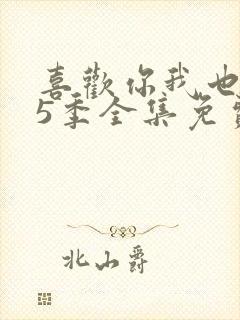 喜歡你我也
5季全集免費
北山爵